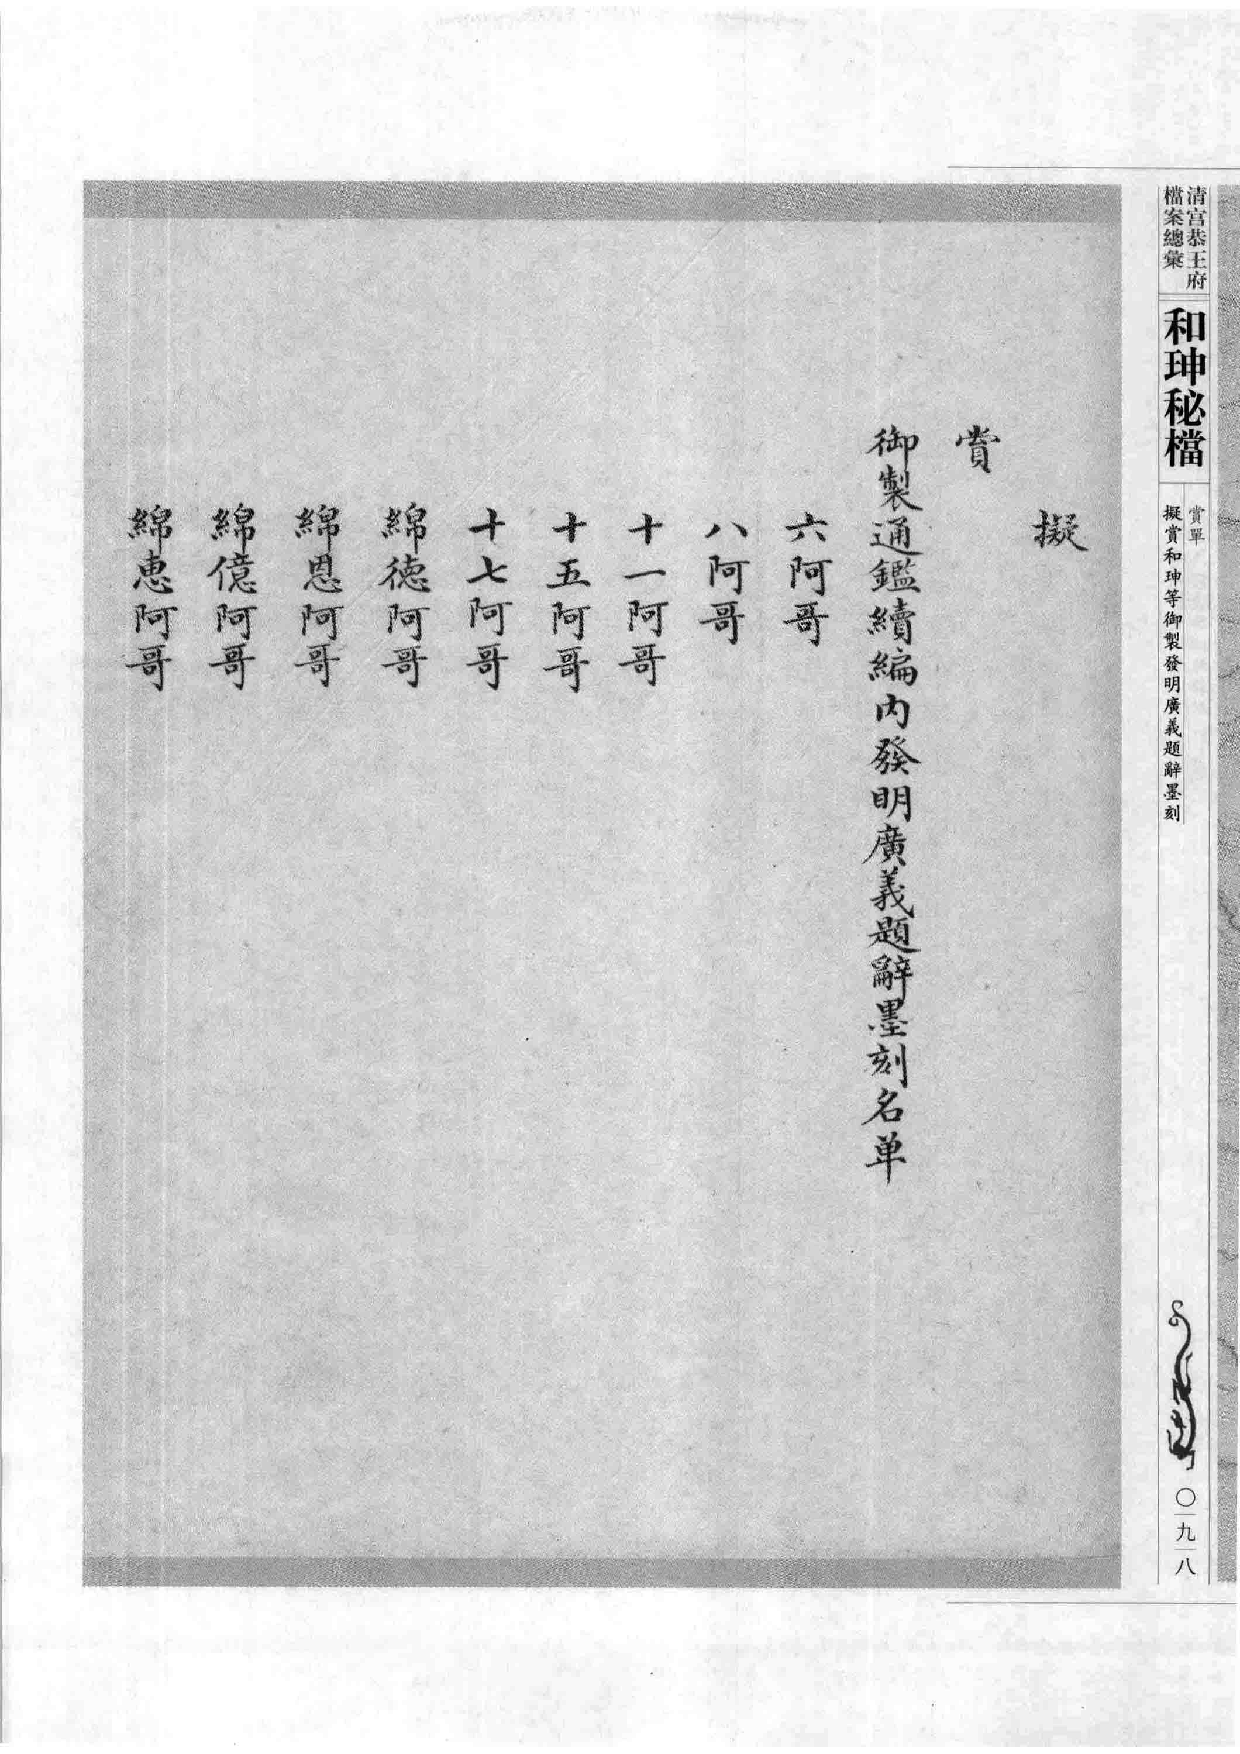 清宮恭王府
檔案總彙
和珅秘檔
賞單
擬賞和珅等御製發明廣義題辭墨刻
〇九八
擬
賞
御製通鑑續編內發明廣義題辭墨刻名单
六阿哥
八阿哥
十一阿哥
十五阿哥
十七阿哥
綿德阿哥
綿恩阿哥
綿億阿哥
綿恵阿哥